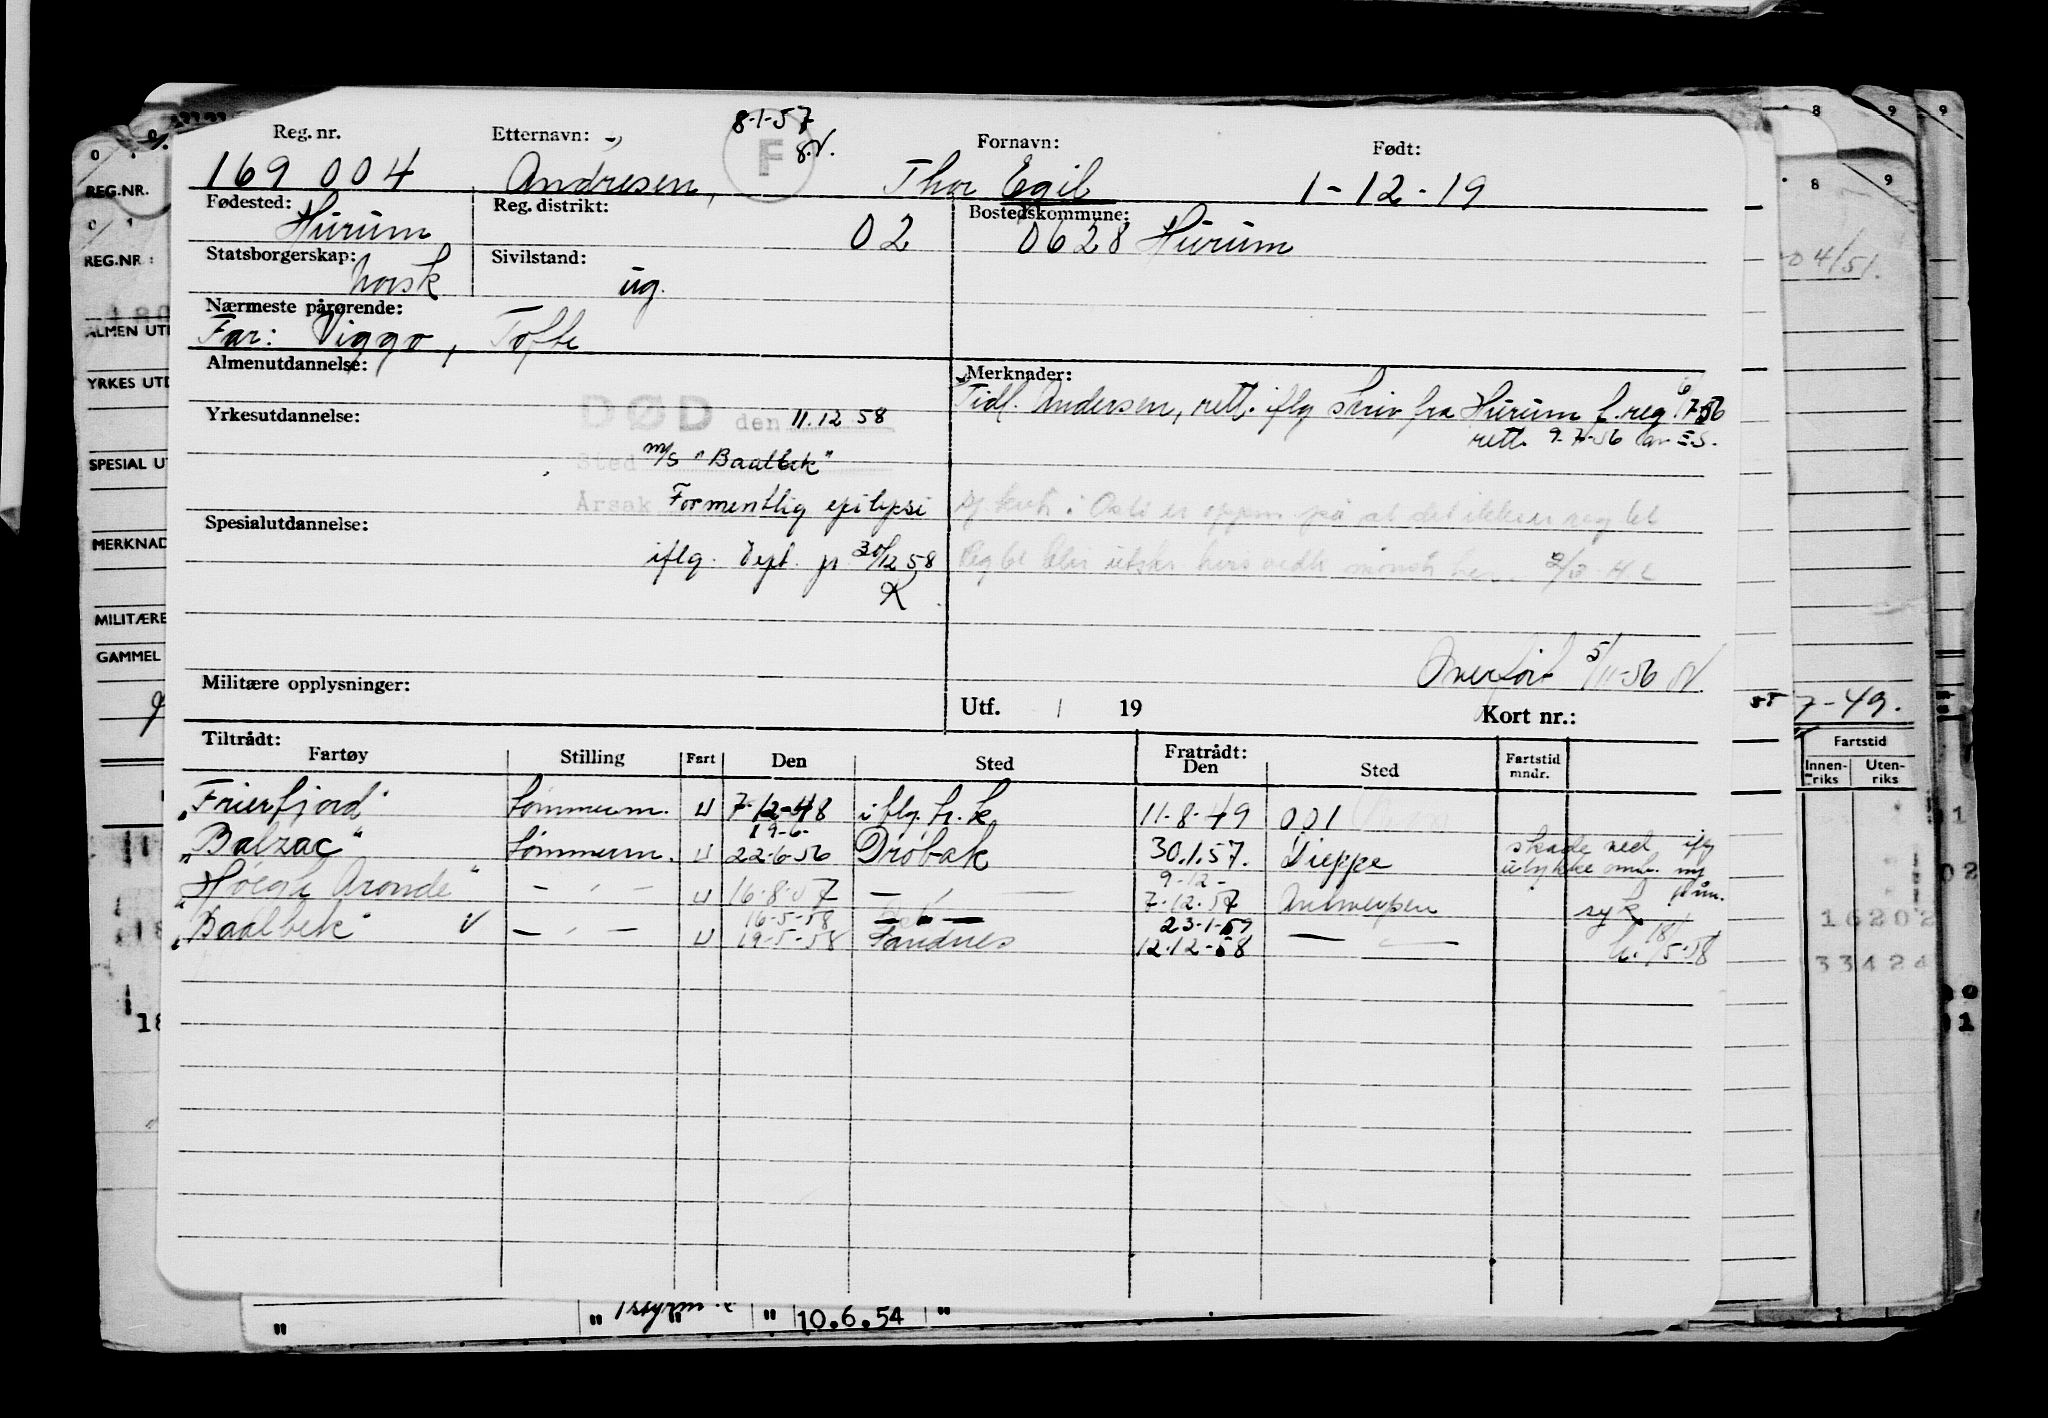 8-1-57
F
Reg. nr. Etternavn: Fornavn: Født:
169 004 Andresen, Thor Egil 1-12-19
Fødested: Reg. distrikt: Bostedskommune:
Hurum 02 0628 Hurum
Statsborgerskap: Sivilstand:
norsk ug.
Nærmeste pårørende:
Far: Viggo, Tofte
Almenutdannelse: Merknader:
Tidl. Andersen, rett. iflg skriv fra Hurum f.reg 6/7-56
Yrkesutdannelse: DØD den 11.12 58
rett. 9-7-56 av
Sted m/s "Baalbek"
Årsak Formentlig epilepsi
Spesialutdannelse:
iflg. 30/12 58
K
Overført 5/11-56 N
Militære opplysninger:
Utf. / 19 Kort nr.:
Tiltrådt: Fratrådt:
Fartøy Stilling Fart Den Sted Den Sted Fartstid mndr.
"Frierfjord" Lømmerm. U 7-12-48 iflg. h.k 11-8-49 001
19-6-
"Balzac" Lømmerm. U 22-6-56 Drøbak 30.1.57. Dieppe skade ved iflg
ulykke omb. ny
9-12-
"Høegh Aronde" — " — U 16-8-57 — " — 7-12-57 Antwerpen syk
16-5-58 23-1-59
"Baalbek" V — " — U 19-5-58 Sandnes 12-12-58 — " — 18/5-58
REG.NR.
REG.NR:
ALMEN UT
YRKES UTD
SPESIAL U
MERKNAD
MILITÆRE
GAMMEL
04/51.
7-49.
Fartstid
Innen-riks Uten-riks
16202
33424
" " 1styrm " 10.6.54 "